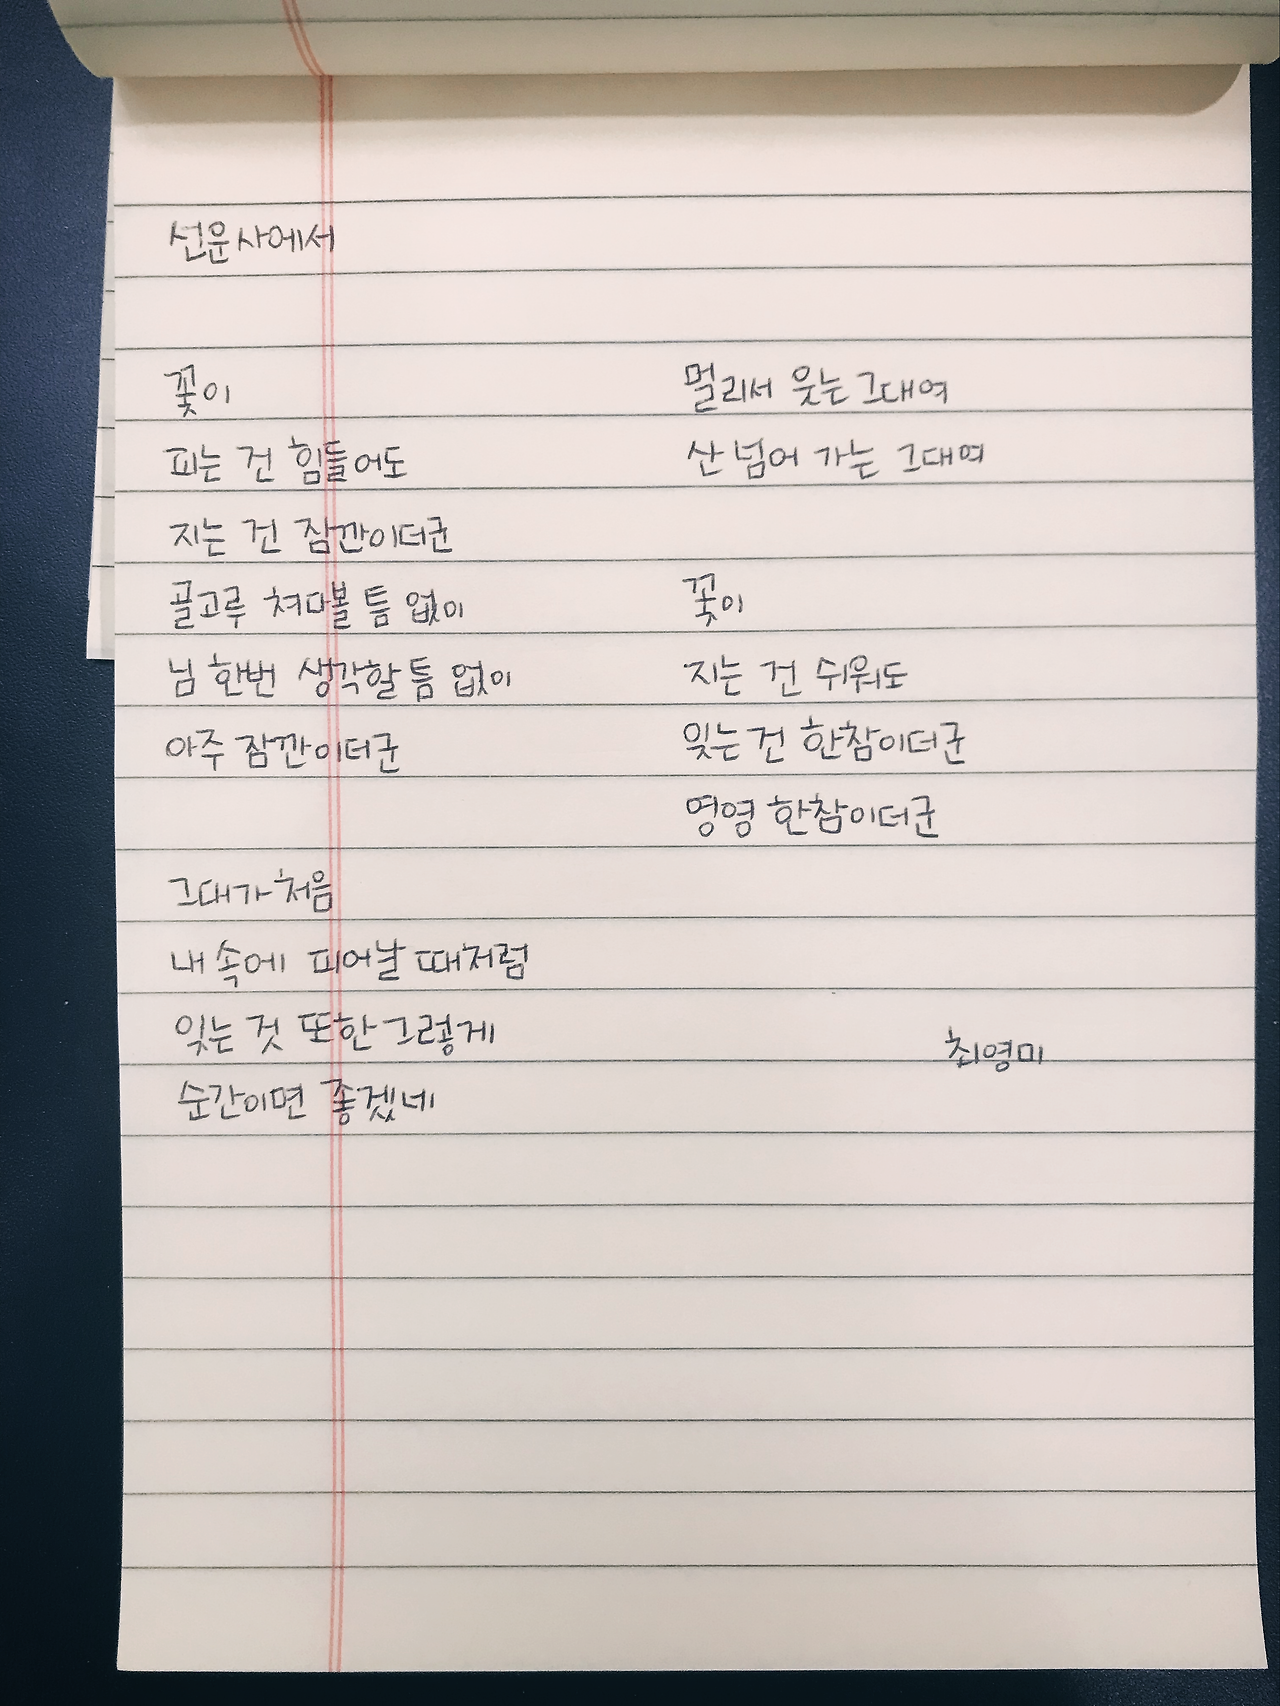 선운사에서
꽃이
피는 건 힘들어도
지는 건 잠깐이더군
골고루 쳐다볼 틈 없이
님 한번 생각할 틈 없이
아주 잠깐이더군
그대가 처음
내 속에 피어날 때처럼
잊는 것 또한 그렇게
순간이면 좋겠네
멀리서 웃는 그대여
산 넘어 가는 그대여
꽃이
지는 건 쉬워도
잊는 건 한참이더군
영영 한참이더군
최영미